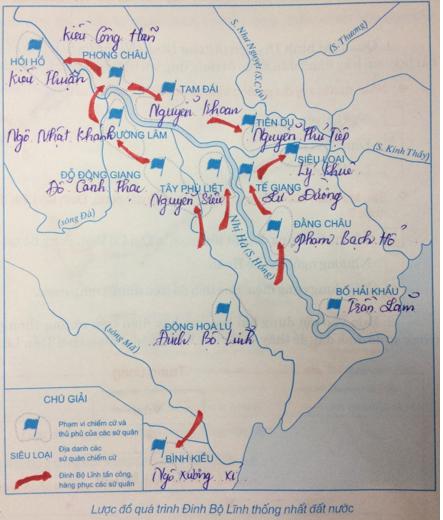 Kiều Công Hãn
HỒI HỒ
PHONG CHÂU
Kiều Thuận
TAM ĐÁI
Nguyễn Khoan
S. Như Nguyệt (S. Cầu)
(S. Thương)
TIÊN DU
Nguyễn Thủ Tiệp
Ngô Nhật Khánh
ĐƯỜNG LÂM
(S. Kinh Thầy)
SIÊU LOẠI
Lý Khuê
ĐỖ ĐỘNG GIANG
Đỗ Cảnh Thạc
TÂY PHÙ LIỆT
Nguyễn Siêu
TẾ GIANG
Lữ Đường
(sông Đà)
Nhị Hà (S. Hồng)
ĐẰNG CHÂU
Phạm Bạch Hổ
BỐ HẢI KHẨU
Trần Lãm
ĐỘNG HOA LƯ
Đinh Bộ Lĩnh
(sông Mã)
CHÚ GIẢI
Phạm vi chiếm cứ và
thủ phủ của các sứ quân
SIÊU LOẠI
Địa danh các
sứ quân chiếm cứ
Đinh Bộ Lĩnh tấn công,
hàng phục các sứ quân
BÌNH KIỀU
Ngô Xương Xí
Lược đồ quá trình Đinh Bộ Lĩnh thống nhất đất nước